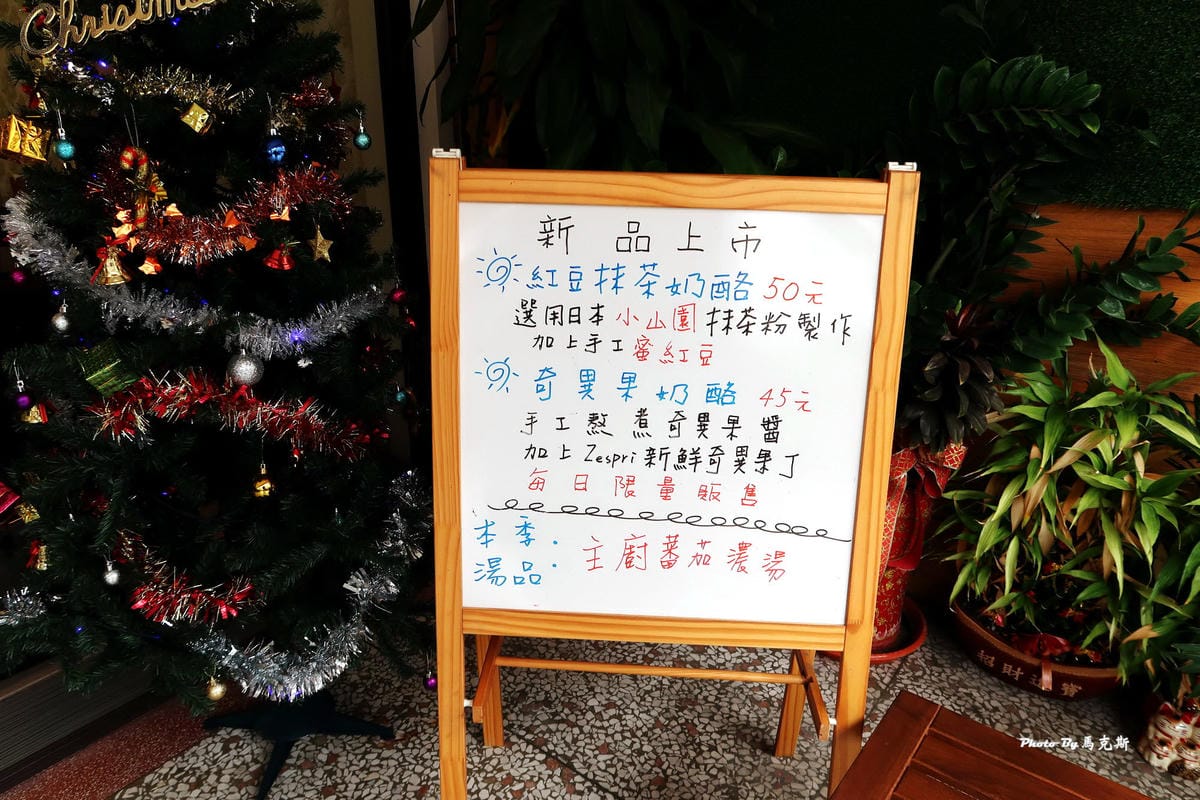 Christmas
新品上市
紅豆抹茶奶酪 50元
選用日本小山園抹茶粉製作
加上手工蜜紅豆
奇異果奶酪 45元
手工熬煮奇異果醬
加上Zespri新鮮奇異果丁
每日限量販售
本季湯品：主廚蕃茄濃湯
招財進寶
Photo By 馬克斯